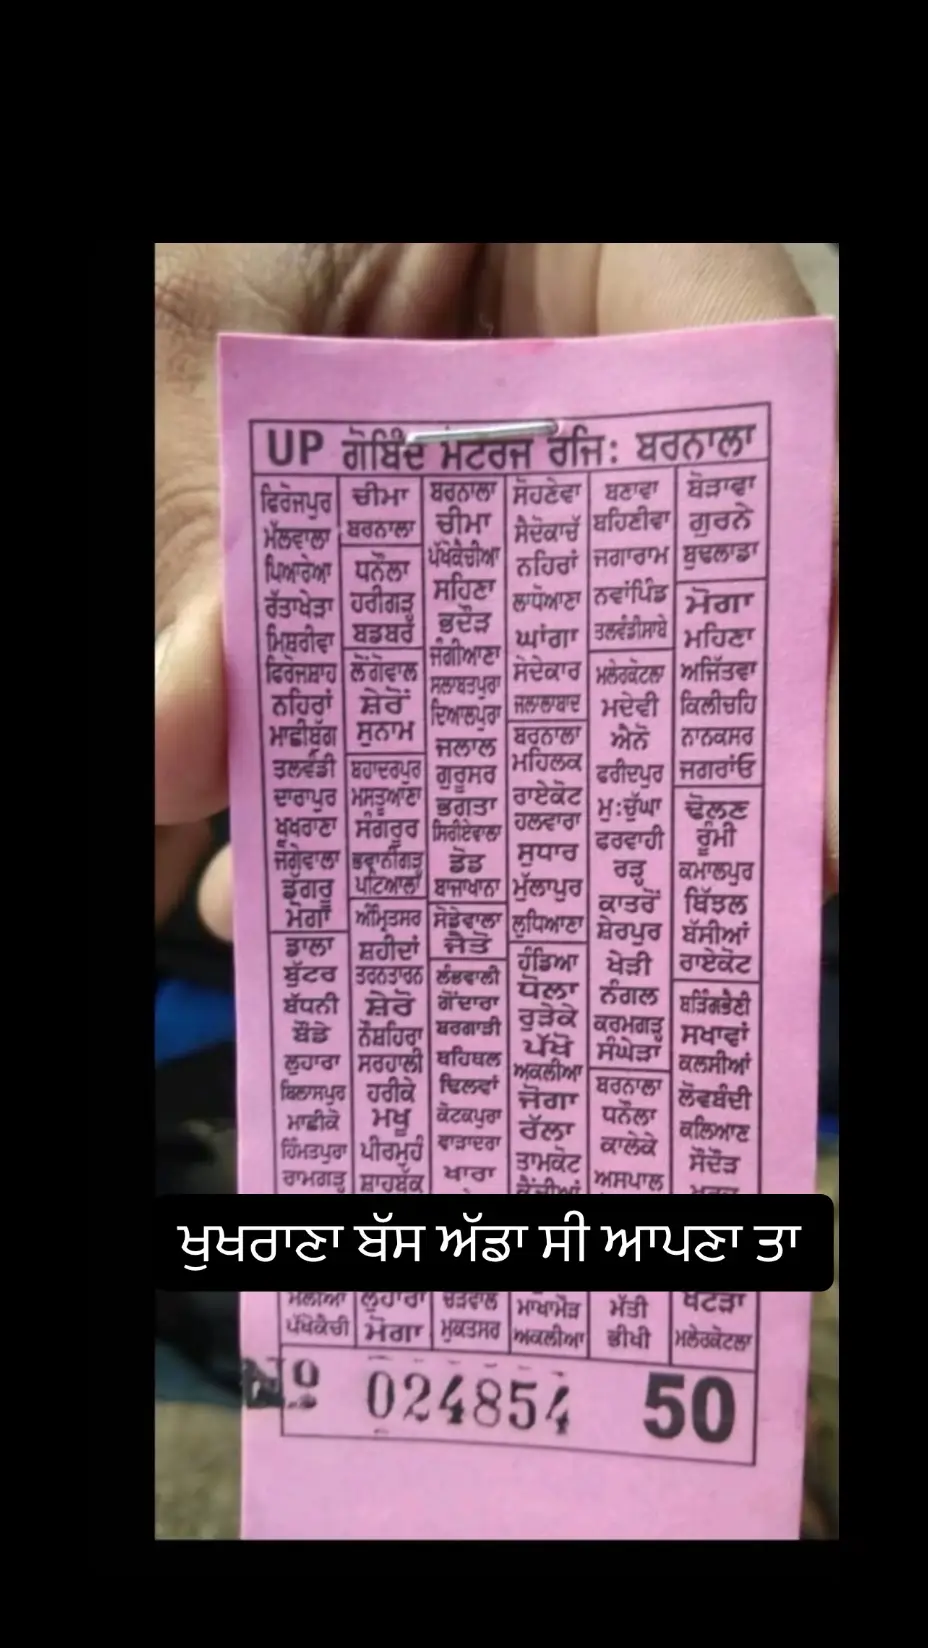 UP ਗੋਬਿੰਦ ਮੋਟਰਜ ਰਜਿ: ਬਰਨਾਲਾ
ਫਿਰੋਜਪੁਰ
ਮੱਲਵਾਲਾ
ਪਿਆਰੇਆ
ਰੱਤਾਖੇੜਾ
ਮਿਸ਼ਰੀਵਾ
ਫਿਰੋਜਸ਼ਾਹ
ਨਹਿਰਾਂ
ਮਾਛੀਬੁੱਗ
ਤਲਵੰਡੀ
ਦਾਰਾਪੁਰ
ਖੁਖਰਾਣਾ
ਜੋਗੇਵਾਲਾ
ਡਗਰੂ
ਮੋਗਾ
ਡਾਲਾ
ਬੁੱਟਰ
ਬੱਧਨੀ
ਬੌਡੇ
ਲੁਹਾਰਾ
ਬਿਲਾਸਪੁਰ
ਮਾਛੀਕੇ
ਹਿੰਮਤਪੁਰਾ
ਰਾਮਗੜ੍ਹ
ਮੱਲੀਆਂ
ਪੱਖੋਕੈਚੀ
ਚੀਮਾ
ਬਰਨਾਲਾ
ਧਨੌਲਾ
ਹਰੀਗੜ੍ਹ
ਬਡਬਰ
ਲੌਂਗੋਵਾਲ
ਸ਼ੇਰੋਂ
ਸੁਨਾਮ
ਬਹਾਦਰਪੁਰ
ਮਸਤੂਆਣਾ
ਸੰਗਰੂਰ
ਭਵਾਨੀਗੜ੍ਹ
ਪਟਿਆਲਾ
ਅੰਮ੍ਰਿਤਸਰ
ਸ਼ਹੀਦਾਂ
ਤਰਨਤਾਰਨ
ਸ਼ੇਰੋਂ
ਨੌਸ਼ਹਿਰਾ
ਸਰਹਾਲੀ
ਹਰੀਕੇ
ਮਖੂ
ਪੀਰਮੁਹੰ
ਸ਼ਾਹਬੁੱਕ
ਲੁਹਾਰਾ
ਮੋਗਾ
ਬਰਨਾਲਾ
ਚੀਮਾ
ਪੱਖੋਕੈਚੀਆ
ਸਹਿਣਾ
ਭਦੌੜ
ਜੰਗੀਆਣਾ
ਸਲਾਬਤਪੁਰਾ
ਦਿਆਲਪੁਰਾ
ਜਲਾਲ
ਗੁਰੂਸਰ
ਭਗਤਾ
ਸਿਰੀਏਵਾਲਾ
ਡੋਡ
ਬਾਜਾਖਾਨਾ
ਸੇਡੇਵਾਲਾ
ਜੈਤੋ
ਲੰਭਵਾਲੀ
ਗੋਂਦਾਰਾ
ਬਰਗਾੜੀ
ਬਹਿਬਲ
ਢਿਲਵਾਂ
ਕੋਟਕਪੁਰਾ
ਵਾੜਾਦਰਾ
ਖਾਰਾ
ਚੜੇਵਾਲ
ਮੁਕਤਸਰ
ਸੋਹਣੇਵਾ
ਸੈਦੋਕਾਚੱ
ਨਹਿਰਾਂ
ਲਾਧੋਆਣਾ
ਘਾਂਗਾ
ਸੋਦੇਕਾਰ
ਜਲਾਲਾਬਾਦ
ਬਰਨਾਲਾ
ਮਹਿਲਕ
ਰਾਏਕੋਟ
ਹਲਵਾਰਾ
ਸੁਧਾਰ
ਮੁੱਲਾਪੁਰ
ਲੁਧਿਆਣਾ
ਹੰਡਿਆ
ਧੋਲਾ
ਰੂੜੇਕੇ
ਪੱਖੋ
ਅਕਲੀਆ
ਜੋਗਾ
ਰੱਲਾ
ਤਾਮਕੋਟ
ਕੈਂਚੀਆਂ
ਮਾਖਾਮੋੜ
ਅਕਲੀਆ
ਬਣਾਵਾ
ਬਹਿਣੀਵਾ
ਜਗਾਰਾਮ
ਨਵਾਂਪਿੰਡ
ਤਲਵੰਡੀਸਾਬੋ
ਮਲੇਰਕੋਟਲਾ
ਮਦੇਵੀ
ਐਨੋ
ਫਰੀਦਪੁਰ
ਮੁ:ਚੁੱਘਾ
ਫਰਵਾਹੀ
ਰੜ੍ਹ
ਕਾਤਰੋਂ
ਸ਼ੇਰਪੁਰ
ਖੇੜੀ
ਨੰਗਲ
ਕਰਮਗੜ੍ਹ
ਸੰਘੇੜਾ
ਬਰਨਾਲਾ
ਧਨੌਲਾ
ਕਾਲੇਕੇ
ਅਸਪਾਲ
ਮੱਤੀ
ਭੀਖੀ
ਬੋੜਾਵਾ
ਗੁਰਨੇ
ਬੁਢਲਾਡਾ
ਮੋਗਾ
ਮਹਿਣਾ
ਅਜਿੱਤਵਾ
ਕਿਲੀਚਹਿ
ਨਾਨਕਸਰ
ਜਗਰਾਂਓ
ਢੋਲਣ
ਰੂੰਮੀ
ਕਮਾਲਪੁਰ
ਬਿੰਝਲ
ਬੱਸੀਆਂ
ਰਾਏਕੋਟ
ਬੜਿੰਗਭੈਣੀ
ਸਖਾਵਾਂ
ਕਲਸੀਆਂ
ਲੋਵਬੰਦੀ
ਕਲਿਆਣ
ਸੌਦੌੜ
ਖਟੜਾ
ਮਲੇਰਕੋਟਲਾ
ਖੁਖਰਾਣਾ ਬੱਸ ਅੱਡਾ ਸੀ ਆਪਣਾ ਤਾ
Nº 024854 50